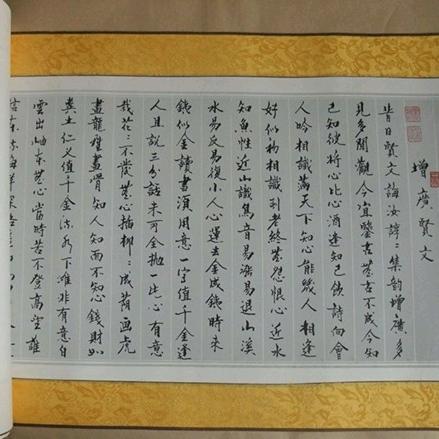 增廣賢文
昔日賢文誨汝諄〻集韵增廣多
見多聞觀今宜鑒古無古不成今知
己知彼將心比心酒逢知己飲詩向會
人吟相識滿天下知心能幾人相逢
好似初相識到老終無怨恨心近水
知魚性近山識鳥音易漲易退山溪
水易反易復小人心運去金成鐵時來
鐵似金讀書須用意一字值千金逢
人且說三分話未可全拋一片心有意
栽花〻不發無心插柳〻成蔭画虎
畫龍難畫骨知人知面不知心錢財如
糞土仁义值千金流水下灘非有意白
雲出岫本無心當時若不登高望誰
信東流海洋深